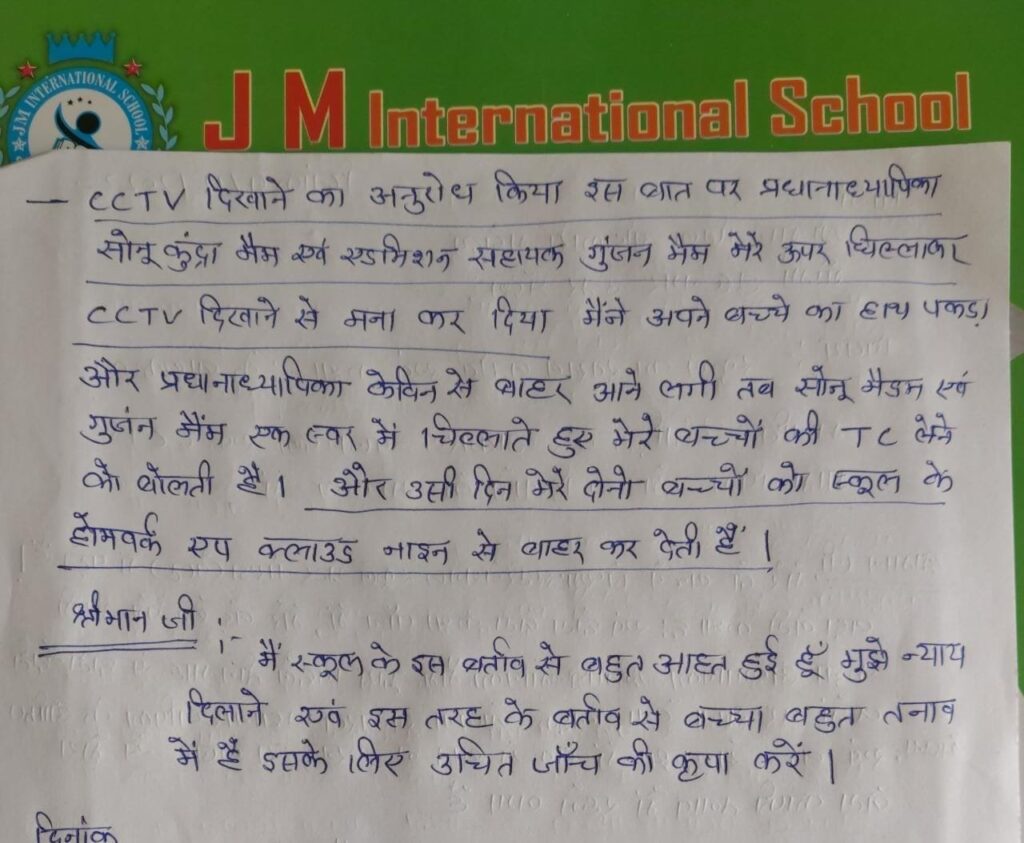 J M INTERNATIONAL SCHOOL
J M International School
— CCTV दिखाने का अनुरोध किया इस बात पर प्रधानाध्यापिका
सोनू कुंद्रा मैम एवं एडमिशन सहायक गुंजन मैम मेरे ऊपर चिल्लाकर
CCTV दिखाने से मना कर दिया मैंने अपने बच्चे का हाथ पकड़ा
और प्रधानाध्यापिका केविन से बाहर आने लगी तब सोनू मैडम एवं
गुंजन मैंम एक स्वर में चिल्लाते हुए मेरे बच्चों की TC लेने
को बोलती है। और उसी दिन मेरे दोनो बच्चों को स्कूल के
होमवर्क एप क्लाउड नाइन से बाहर कर देती हैं।
श्रीमान जी :-
मैं स्कूल के इस बर्ताव से बहुत आहत हुई हूँ मुझे न्याय
दिलाने एवं इस तरह के बर्ताव से बच्चा बहुत तनाव
में हैं इसके लिए उचित जाँच की कृपा करें।
दिनांक